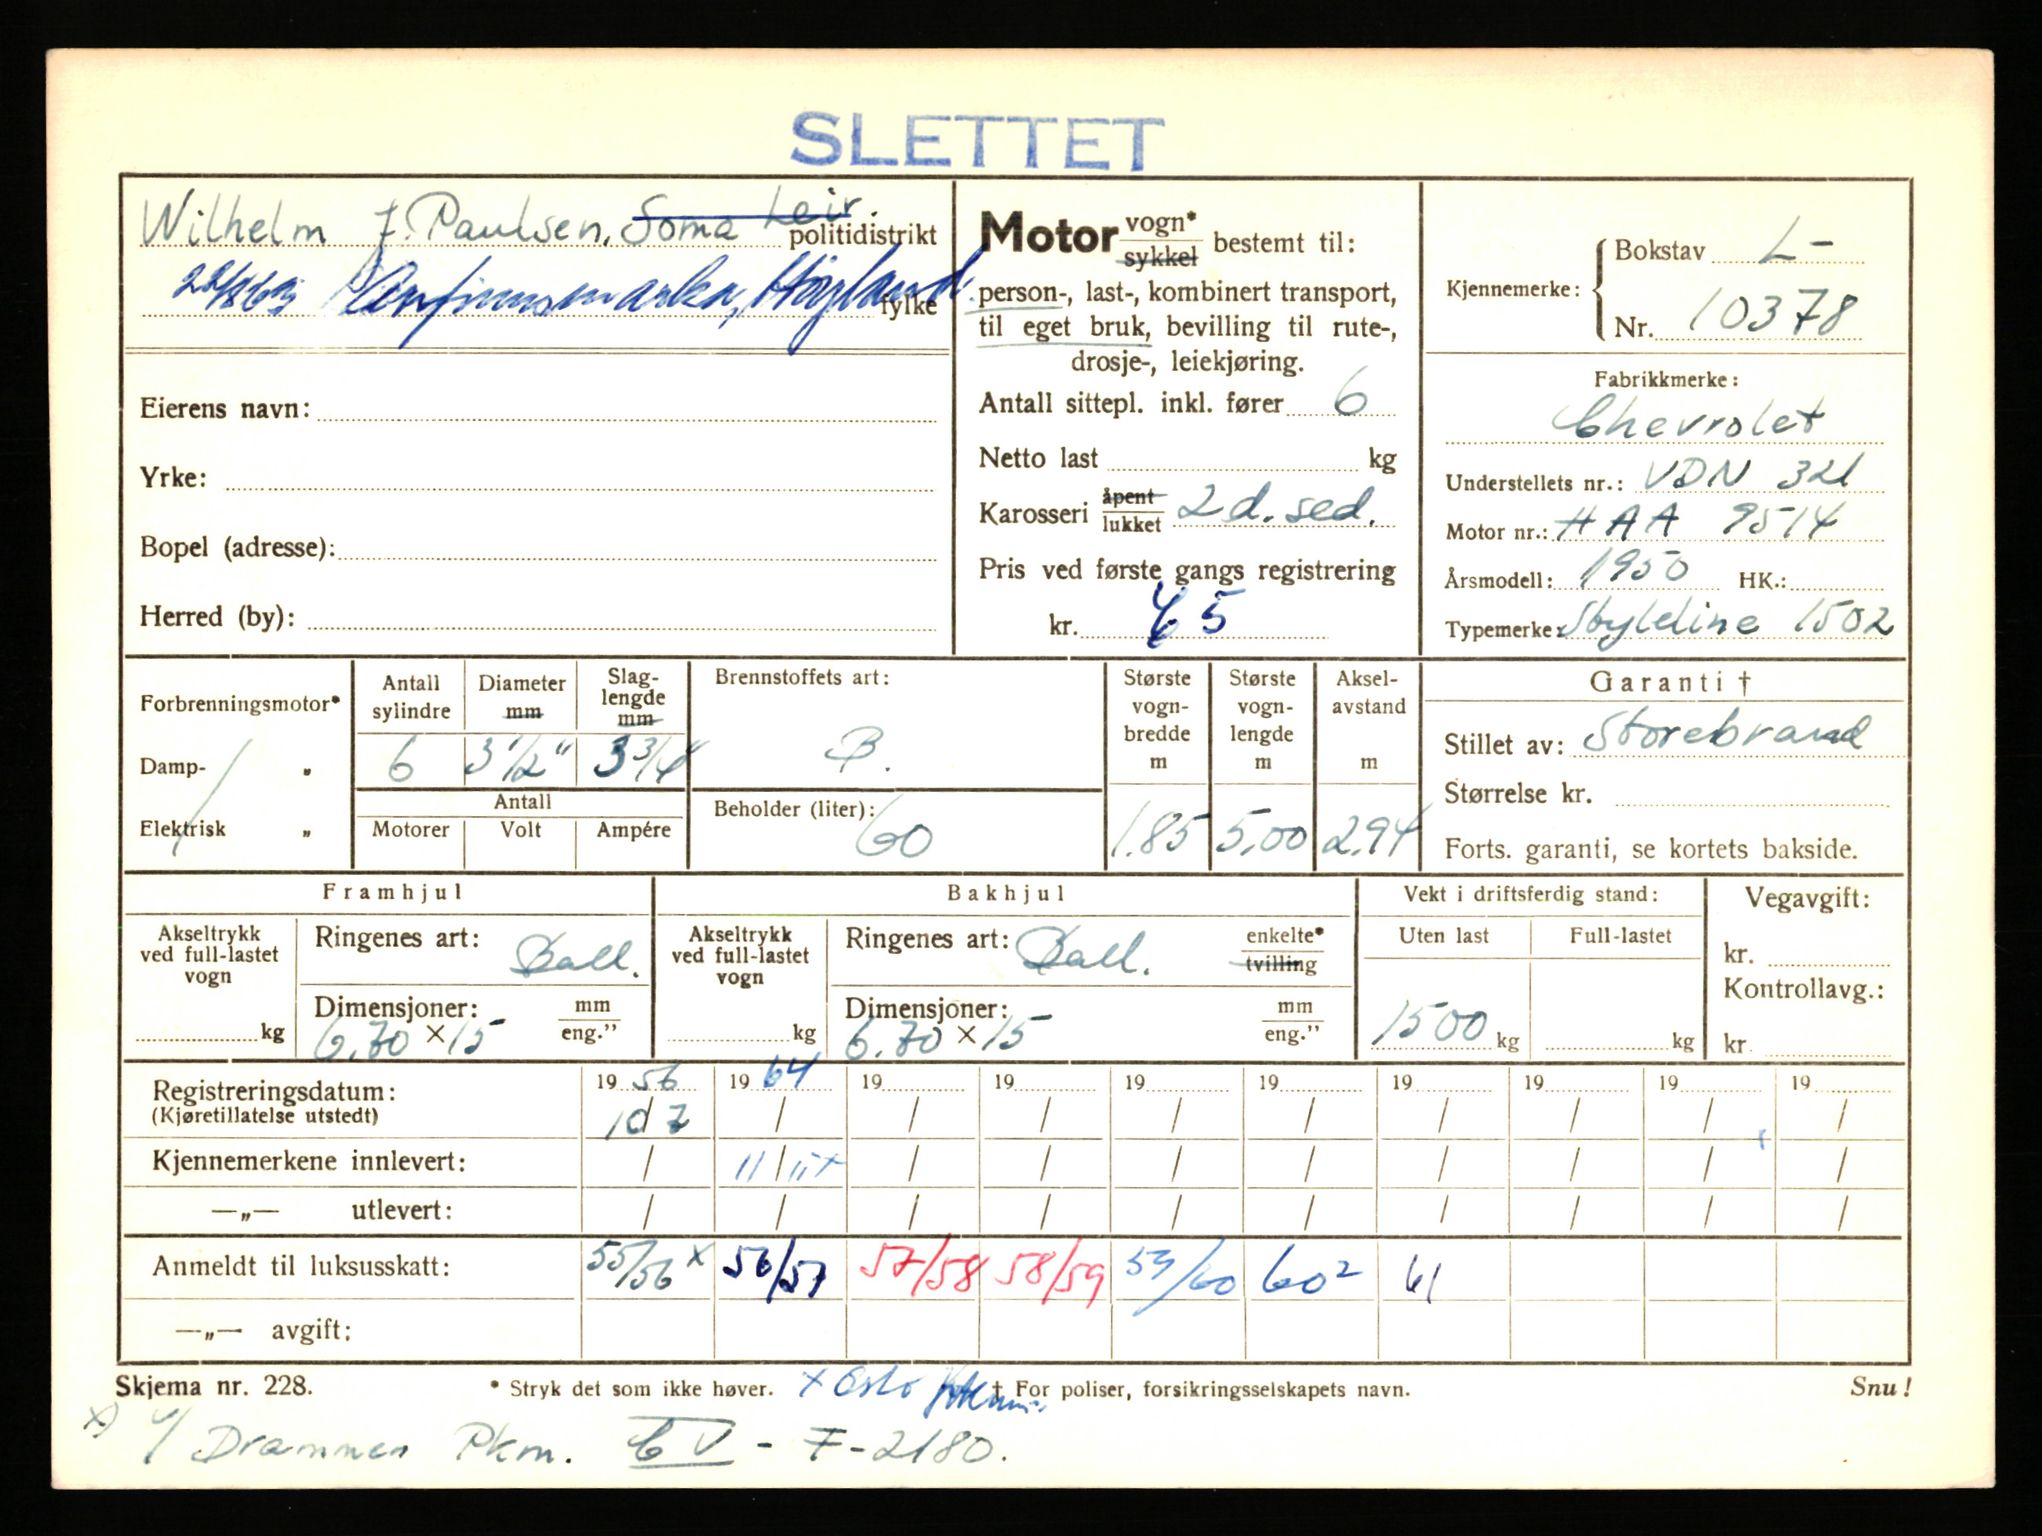 SLETTET
Wilhelm J. Paulsen, Soma Leir. politidistrikt
fylke
Eierens navn:
Yrke:
Bopel (adresse):
Herred (by):
Motor vogn* sykkel bestemt til:
person-, last-, kombinert transport,
til eget bruk, bevilling til rute-,
drosje-, leiekjøring.
Antall sittepl. inkl. fører 6
Netto last kg
Karosseri åpent lukket 2 d. sed.
Pris ved første gangs registrering
kr. 65
Kjennemerke: Bokstav L-
Nr. 10378
Fabrikkmerke:
Chevrolet
Understellets nr.: VDN 321
Motor nr.: HAA 9514
Årsmodell: 1950 HK.:
Typemerke: Styleline 1502
Forbrenningsmotor*
Damp- "
Elektrisk "
Antall sylindre
6
Diameter mm
3 1/2"
Slag-lengde mm
3 3/4"
Antall
Motorer Volt Ampére
Brennstoffets art:
B.
Beholder (liter):
60
Største vogn-bredde m
1.85
Største vogn-lengde m
5,00
Aksel-avstand m
2.94
Garanti †
Stillet av: Storebrand
Størrelse kr.
Forts. garanti, se kortets bakside.
Framhjul
Akseltrykk ved full-lastet vogn
kg
Ringenes art: Ball.
Dimensjoner: mm
6.70 × 15 eng.”
Bakhjul
Akseltrykk ved full-lastet vogn
kg
Ringenes art: Ball. enkelte* tvilling
Dimensjoner: mm
6.70 × 15 eng.”
Vekt i driftsferdig stand:
Uten last Full-lastet
1500 kg kg
Vegavgift:
kr.
Kontrollavg.:
kr.
Registreringsdatum: 19 56 19 64 19 19 19 19 19 19 19 19
(Kjøretillatelse utstedt) 10/7 / / / / / / / / /
Kjennemerkene innlevert: / 11/11 x / / / / / / / /
—„— utlevert: / / / / / / / / / /
Anmeldt til luksusskatt: 55/56 x 56/57 57/58 58/59 59/60 60² 61
—„— avgift:
Skjema nr. 228. * Stryk det som ikke høver. x Oslo † For poliser, forsikringsselskapets navn. Snu!
x) 4/ Drammen Pkm. CV - F-2180.